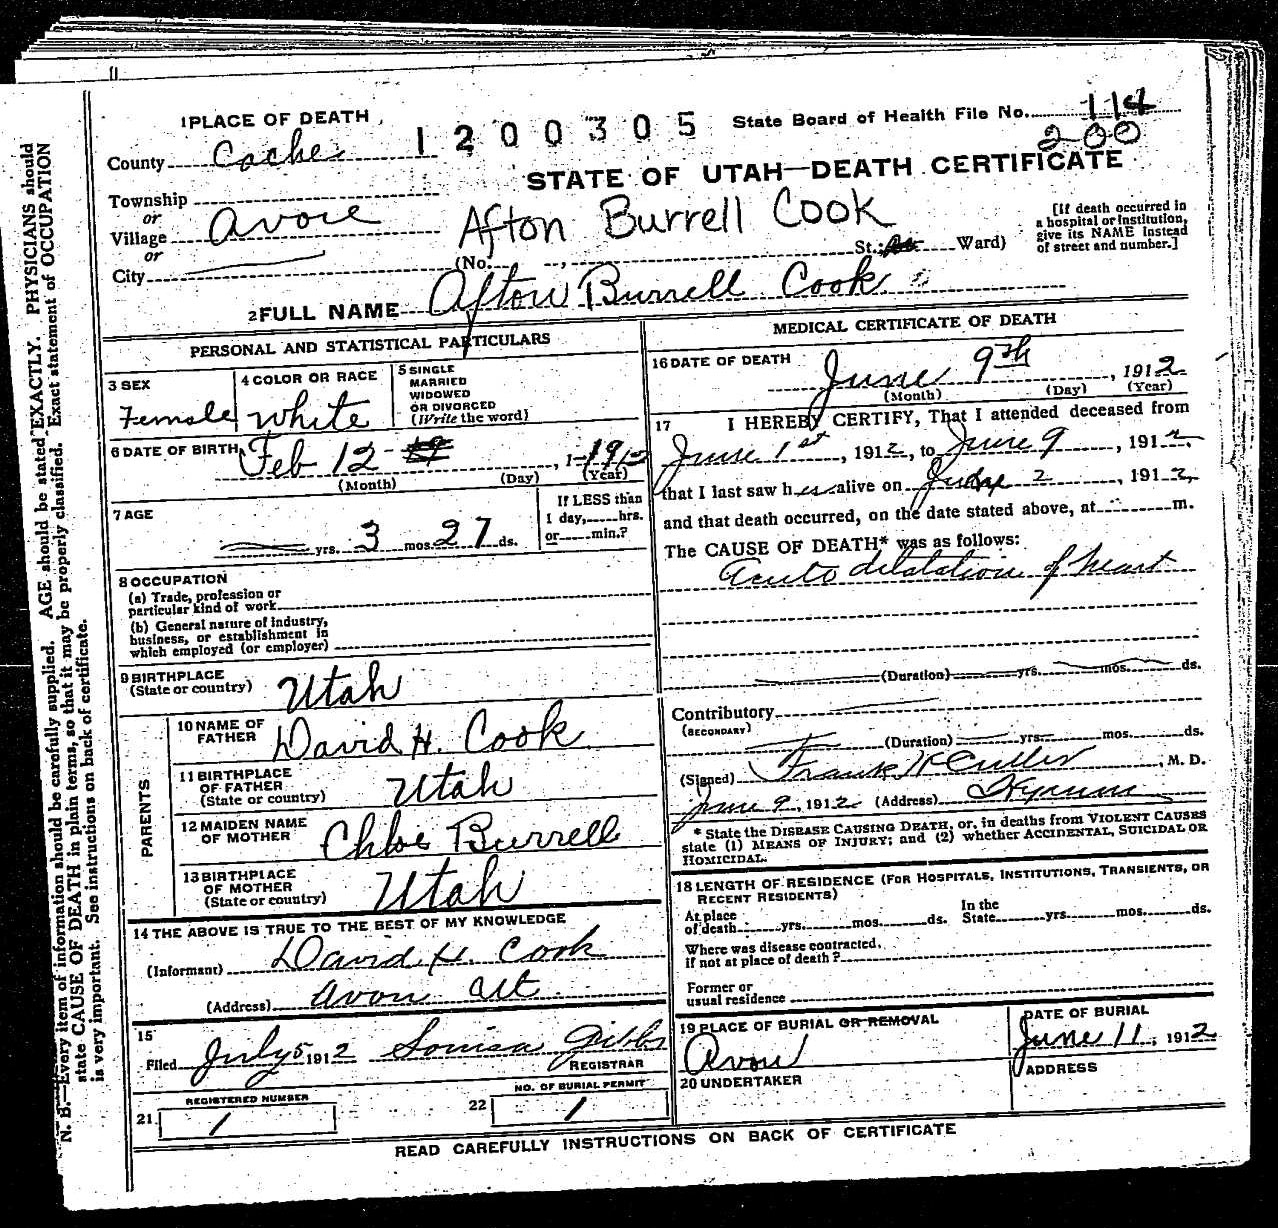 1 PLACE OF DEATH
1200305
State Board of Health File No. 114
200
County Cache
STATE OF UTAH—DEATH CERTIFICATE
Township
or
Village Avon
or
City
Afton Burrell Cook
(No. , St.; Ward)
[If death occurred in
a hospital or institution,
give its NAME instead
of street and number.]
2 FULL NAME Afton Burrell Cook
PERSONAL AND STATISTICAL PARTICULARS
3 SEX
Female
4 COLOR OR RACE
White
5 SINGLE
MARRIED
WIDOWED
OR DIVORCED
(Write the word)
6 DATE OF BIRTH Feb 12 , 1912
(Month) (Day) (Year)
7 AGE
yrs. 3 mos. 27 ds.
If LESS than
1 day, hrs.
or min.?
8 OCCUPATION
(a) Trade, profession or
particular kind of work
(b) General nature of industry,
business, or establishment in
which employed (or employer)
9 BIRTHPLACE
(State or country) Utah
PARENTS
10 NAME OF
FATHER David H. Cook
11 BIRTHPLACE
OF FATHER
(State or country) Utah
12 MAIDEN NAME
OF MOTHER Chloe Burrell
13 BIRTHPLACE
OF MOTHER
(State or country) Utah
14 THE ABOVE IS TRUE TO THE BEST OF MY KNOWLEDGE
(Informant) David H. Cook
(Address) Avon Ut
15
Filed July 5 1912 Louisa Gibbs
REGISTRAR
REGISTERED NUMBER
21 1
NO. OF BURIAL PERMIT
22 1
MEDICAL CERTIFICATE OF DEATH
16 DATE OF DEATH June 9th , 1912
(Month) (Day) (Year)
17 I HEREBY CERTIFY, That I attended deceased from
June 1st , 1912, to June 9 , 1912,
that I last saw her alive on 2 , 1912
and that death occurred, on the date stated above, at m.
The CAUSE OF DEATH* was as follows:
Acute dilatation of heart
(Duration) yrs. mos. ds.
Contributory
(SECONDARY)
(Duration) yrs. mos. ds.
(Signed) Frank , M. D.
June 9, 1912 (Address) Hyrum
* State the DISEASE CAUSING DEATH, or, in deaths from VIOLENT CAUSES
state (1) MEANS OF INJURY; and (2) whether ACCIDENTAL, SUICIDAL OR
HOMICIDAL.
18 LENGTH OF RESIDENCE (FOR HOSPITALS, INSTITUTIONS, TRANSIENTS, OR
RECENT RESIDENTS)
At place
of death yrs. mos. ds.
In the
State yrs. mos. ds.
Where was disease contracted,
if not at place of death?
Former or
usual residence
19 PLACE OF BURIAL OR REMOVAL
Avon
DATE OF BURIAL
June 11, 1912
20 UNDERTAKER
ADDRESS
READ CAREFULLY INSTRUCTIONS ON BACK OF CERTIFICATE
N. B.—Every item of information should be carefully supplied. AGE should be stated EXACTLY. PHYSICIANS should
state CAUSE OF DEATH in plain terms, so that it may be properly classified. Exact statement of OCCUPATION
is very important. See instructions on back of certificate.